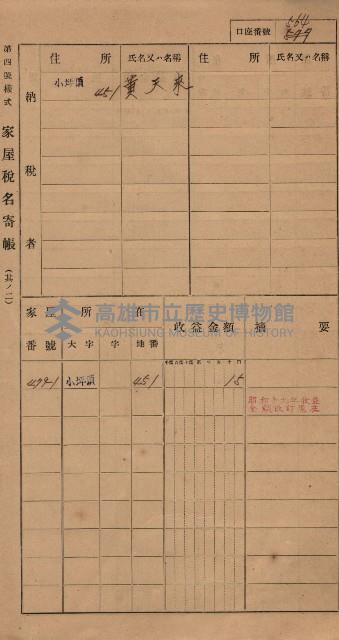 第四號樣式
家屋稅名寄帳
（其ノ二）
口座番號
564
599
住所
氏名又ハ名稱
住所
氏名又ハ名稱
納稅者
小坪頂 451
黃天來
高雄市立歷史博物館
KAOHSIUNG MUSEUM OF HISTORY
家屋所在
收益金額
摘要
番號
大字
字
地番
499-1
小坪頂
451
15
昭和十九年收益
金額改訂濟